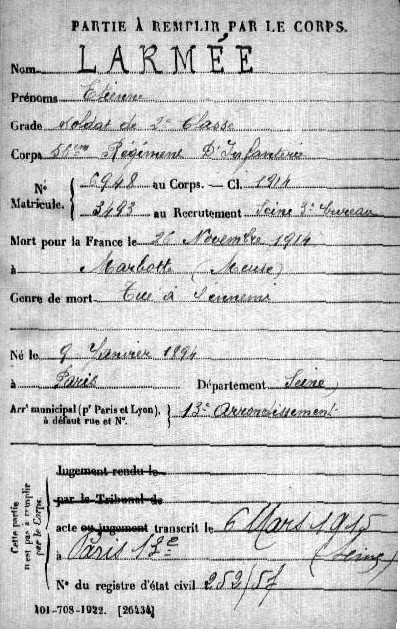 PARTIE À REMPLIR PAR LE CORPS.
Nom LARMÉE
Prénoms Etienne
Grade Soldat de 2e Classe
Corps 56eme Régiment D'Infanterie
N° Matricule. 6948 au Corps. — Cl. 1914
3493 au Recrutement Seine 3e bureau
Mort pour la France le 26 Novembre 1914
à Marbotte (Meuse)
Genre de mort Tué à l'ennemi
Né le 9 Janvier 1894
à Paris Département Seine
Arrt municipal (pr Paris et Lyon), à défaut rue et N°. 13e Arrondissement
Cette partie n'est pas à remplir par le Corps.
Jugement rendu le
par le Tribunal de
acte ou jugement transcrit le 6 Mars 1915
à Paris 13e (Seine)
N° du registre d'état civil 252/57
101-708-1922. [26434]